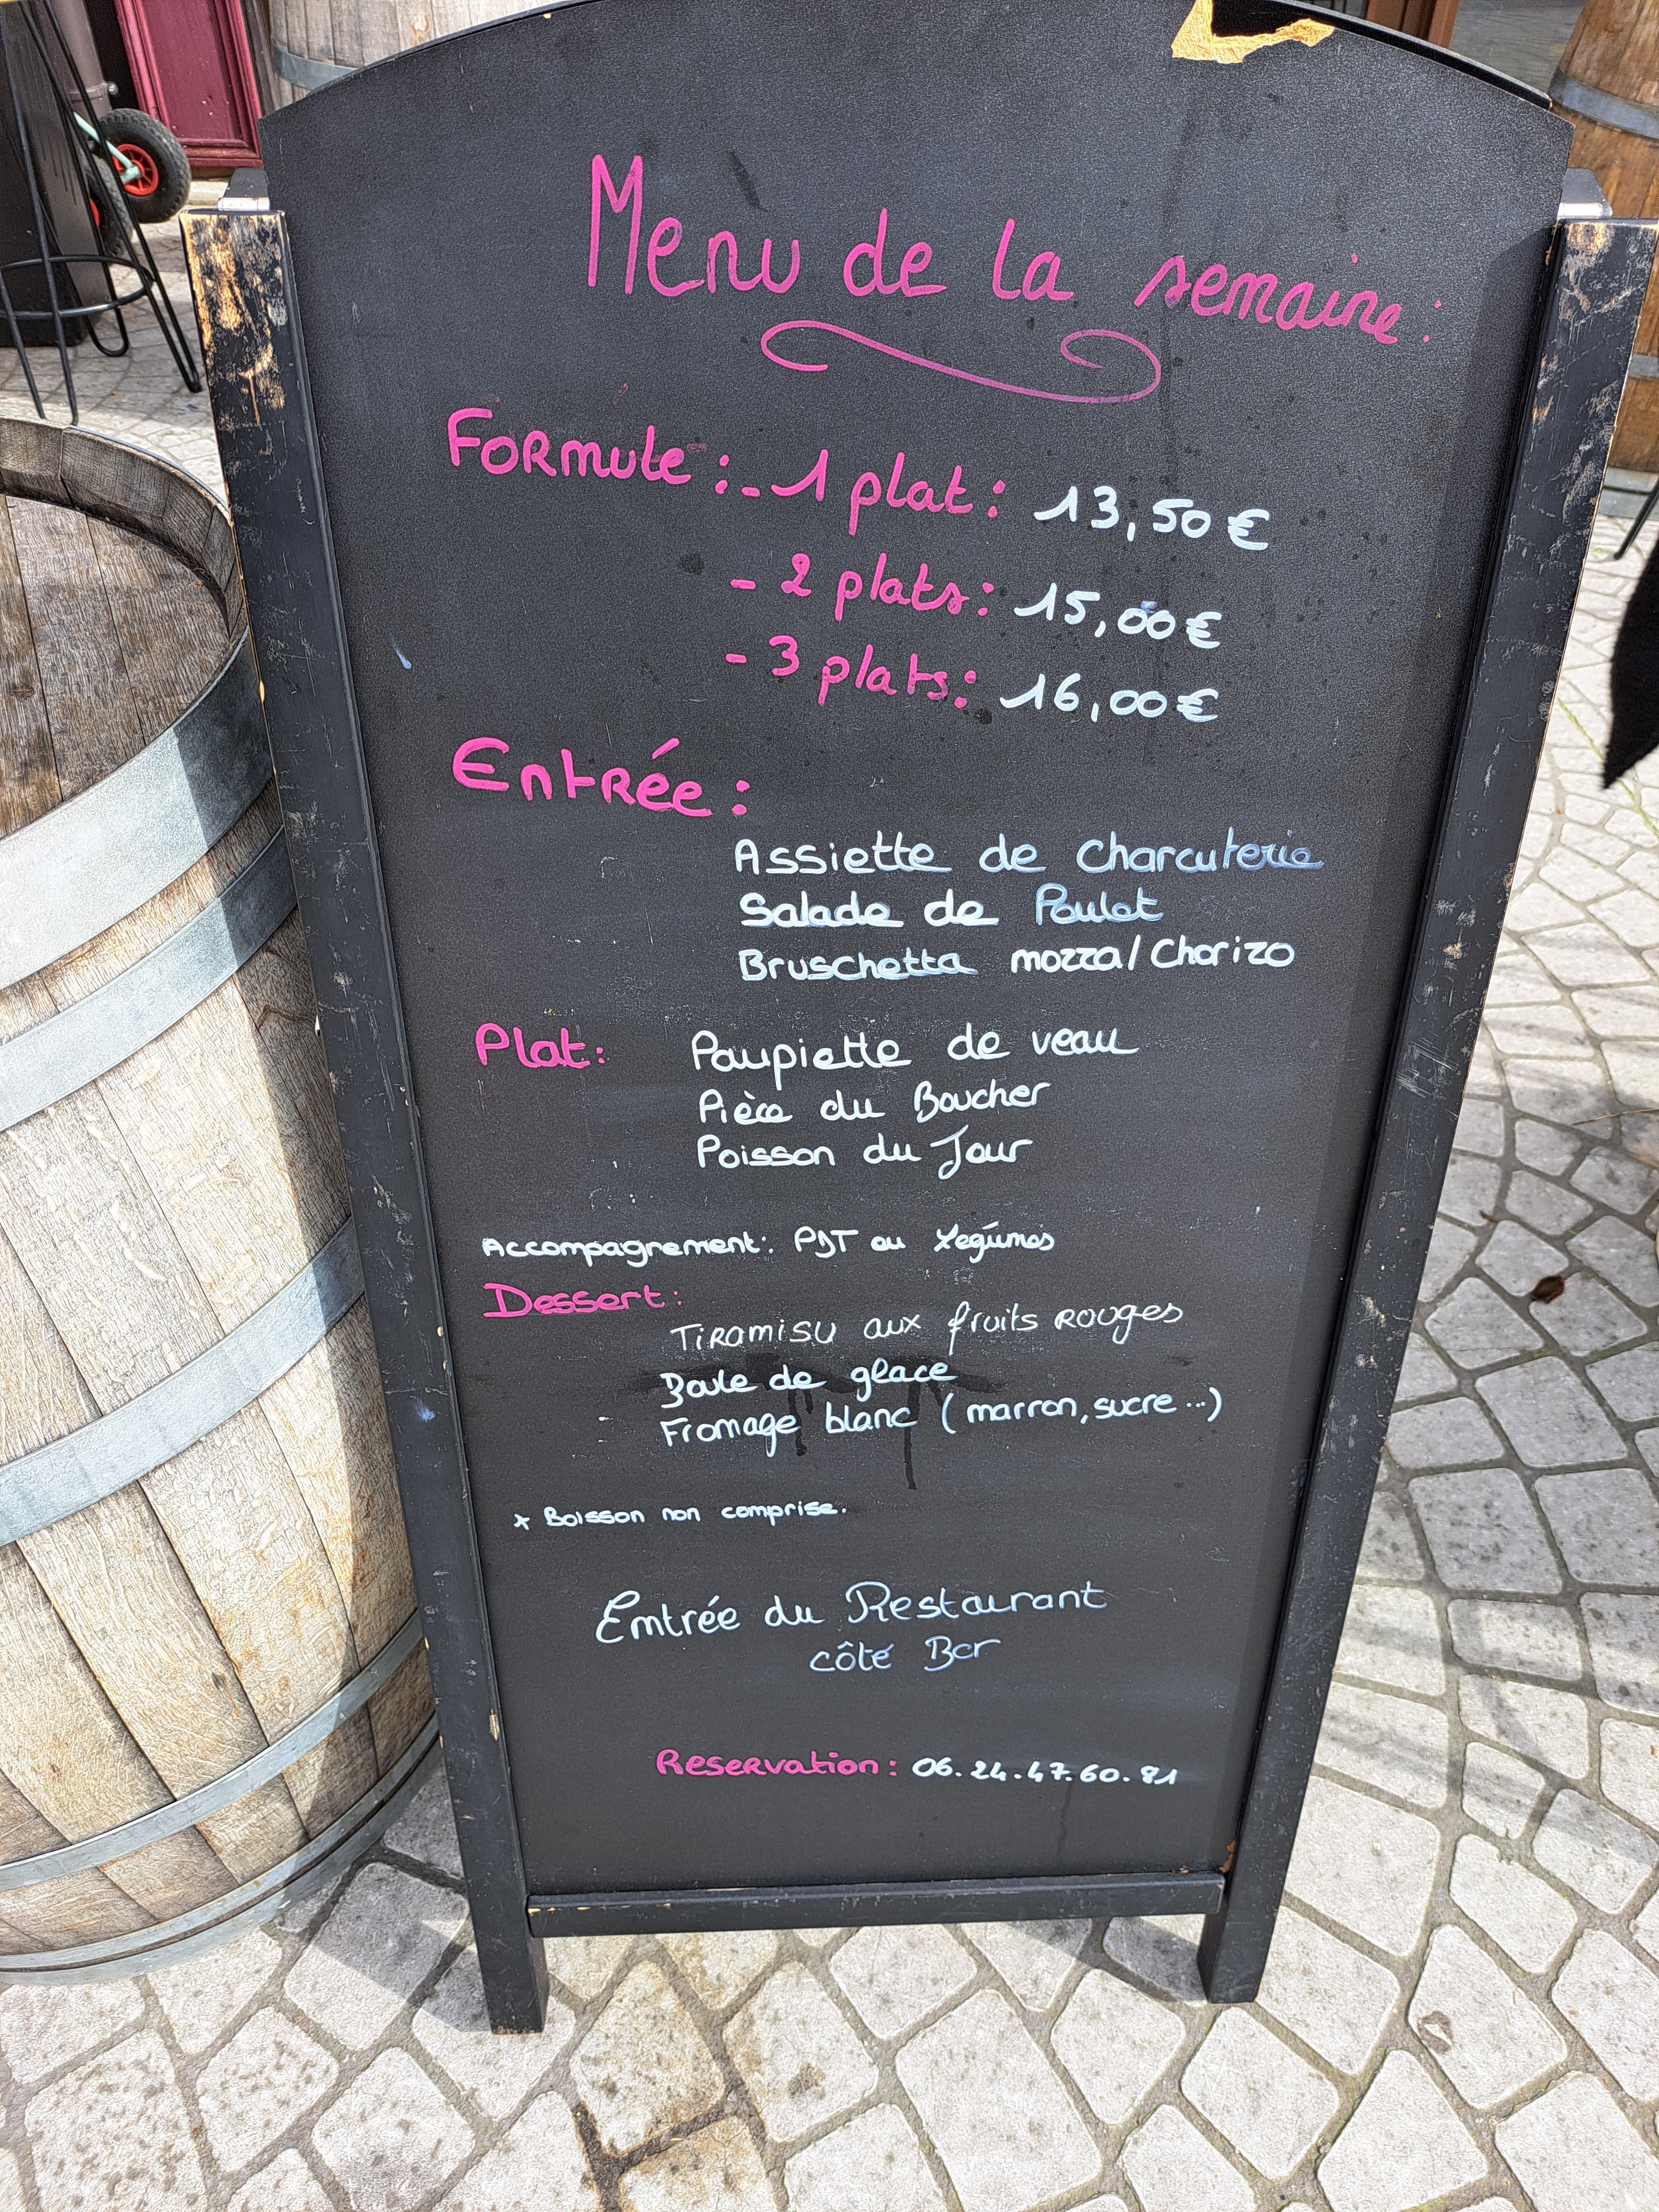 Menu de la semaine:
Formule: - 1 plat: 13,50€
- 2 plats: 15,00€
- 3 plats: 16,00€
Entrée:
Assiette de charcuterie
Salade de Poulet
Bruschetta mozza/Chorizo
Plat: Paupiette de veau
Pièce du Boucher
Poisson du Jour
Accompagnement: PDT ou Legúmes
Dessert:
Tiramisu aux fruits rouges
Boule de glace
Fromage blanc (marron, sucre...)
* Boisson non comprise.
Entrée du Restaurant
côté Bar
Reservation: 06.24.47.60.81